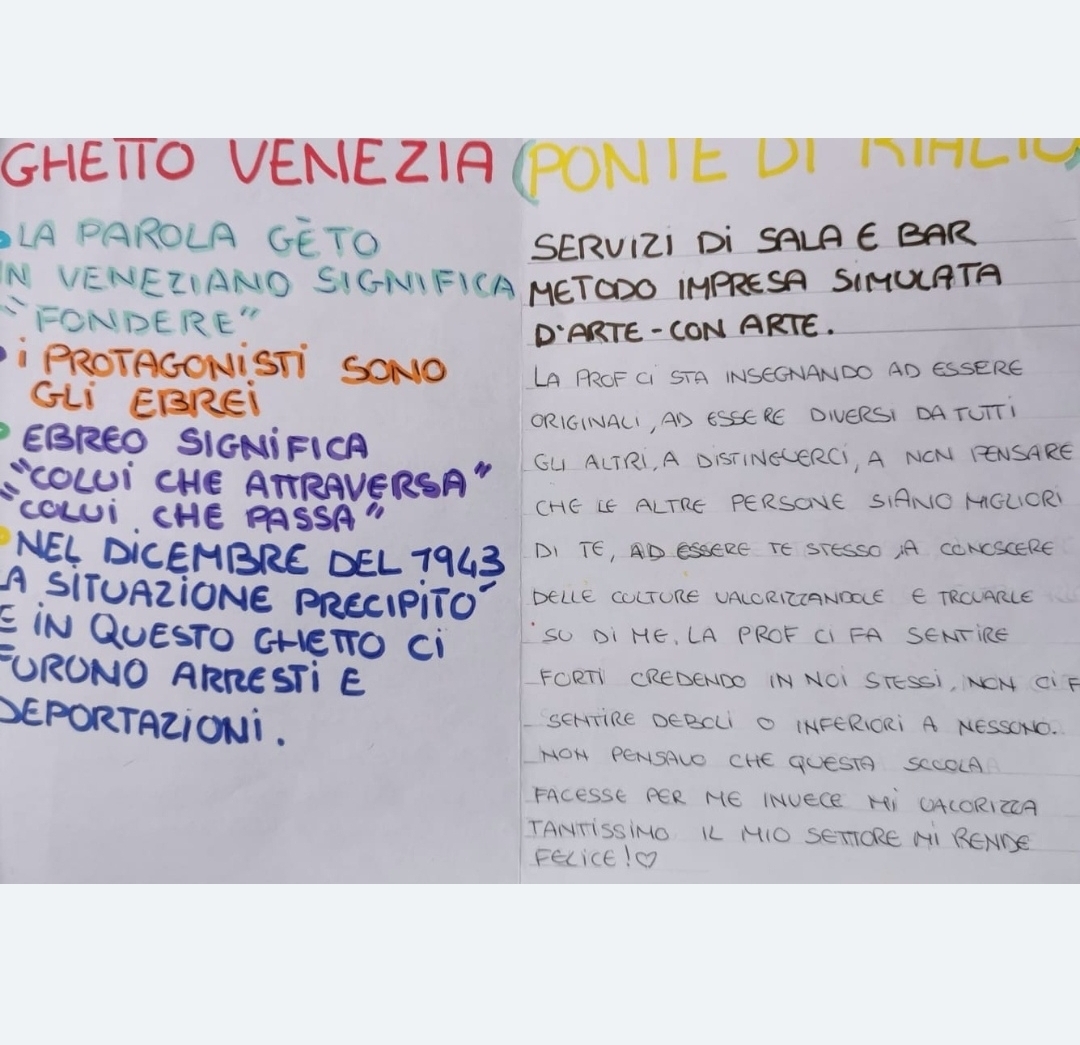 GHETTO VENEZIA
LA PAROLA GĒTO
IN VENEZIANO SIGNIFICA
"FONDERE"
I PROTAGONISTI SONO
GLI EBREI
EBREO SIGNIFICA
"COLUI CHE ATTRAVERSA"
"COLUI CHE PASSA"
NEL DICEMBRE DEL 1943
LA SITUAZIONE PRECIPITO'
E IN QUESTO GHETTO CI
FURONO ARRESTI E
DEPORTAZIONI.
(PONTE DI RIALTO)
SERVIZI DI SALA E BAR
METODO IMPRESA SIMULATA
D'ARTE - CON ARTE.
LA PROF CI STA INSEGNANDO AD ESSERE
ORIGINALI, AD ESSERE DIVERSI DA TUTTI
GLI ALTRI, A DISTINGUERCI, A NON PENSARE
CHE LE ALTRE PERSONE SIANO MIGLIORI
DI TE, AD ESSERE TE STESSO, A CONOSCERE
DELLE CULTURE VALORIZZANDOLE E TROVARLE
SU DI ME. LA PROF CI FA SENTIRE
FORTI CREDENDO IN NOI STESSI, NON CI F
SENTIRE DEBOLI O INFERIORI A NESSUNO.
NON PENSAVO CHE QUESTA SCUOLA
FACESSE PER ME INVECE MI VALORIZZA
TANTISSIMO IL MIO SETTORE MI RENDE
FELICE! ♡